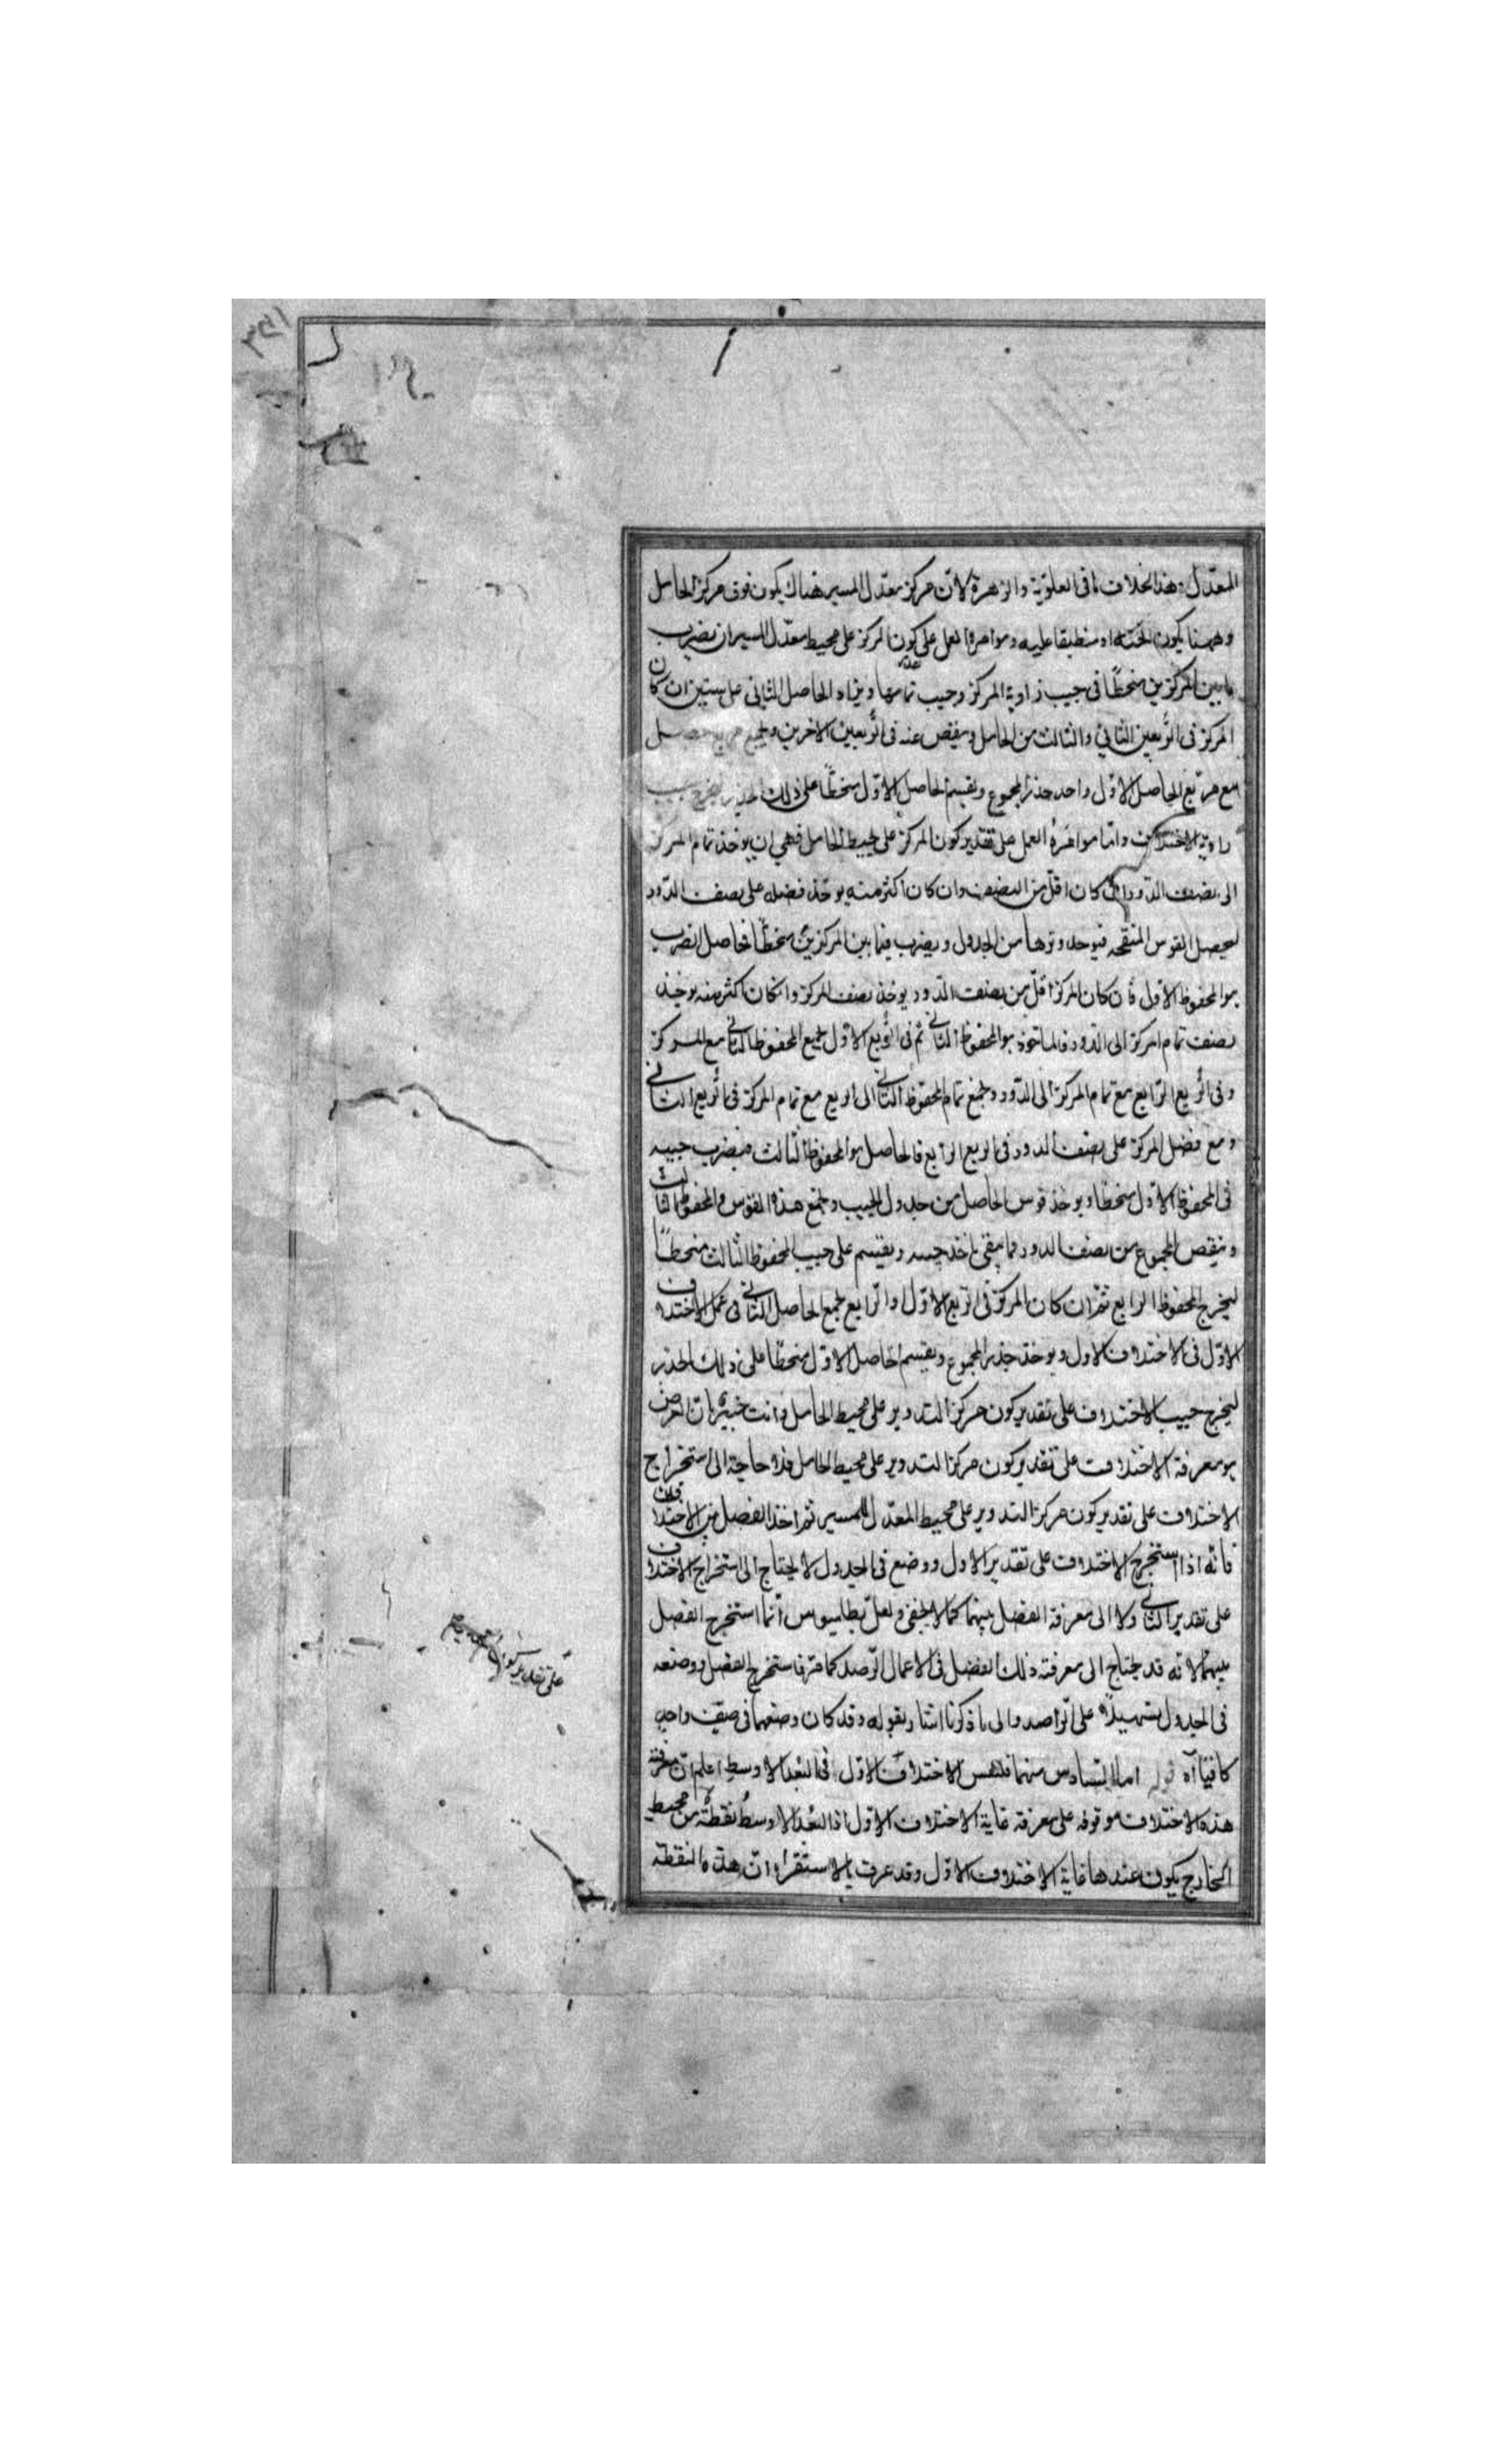 المعدّل وهذا بخلاف ما فى العلويّة والزهرة لانّ مركز معدّل المسير هناك يكون فوق مركز الحامل
وههنا يكون تحته او منطبقا عليه ومواهرة العمل على كون المركز على محيط معدّل المسير ان يضرب
ما بين المركزين منحطّا فى جيب زاوية المركز وجيب تمامها ويزاد الحاصل الثانى على ستين ان كان
المركز فى الرّبعين الثانى والثالث من الحامل وينقص عنه فى الرّبعين الاخرين ويجمع مربع
مع مربّع الحاصل الاوّل واحد جذر المجموع ويقسم الحاصل الاوّل منحطّا على ذلك الجذر ليخرج جيب
زاوية الاختلاف وامّا مواهرة العمل على تقدير كون المركز على محيط الحامل فهى ان يوخذ تمام المركز
الى نصف الدّور ان كان اقلّ من النصف وان كان اكثر منه يوخذ فضله على نصف الدّور
ليحصل القوس المنقحه فيوخذ وترها من الجدول ويضرب فيما بين المركزين منحطّا فحاصل الضرب
هو المحفوظ الاول فان كان المركز اقلّ من نصف الدّور يوخذ نصف المركز وان كان اكثر منه يوخذ
نصف تمام المركز الى الدّور فالماخوذ هو المحفوظ الثانى ثم فى الرّبع الاوّل يجمع المحفوظ الثانى مع المركز
وفى الرّبع الرّابع مع تمام المركز الى الدّور ويجمع تمام المحفوظ الثانى الى الربع مع تمام المركز فى الرّبع الثانى
ومع فضل المركز على نصف الدور فى الربع الرابع فالحاصل هو المحفوظ الثالث فيضرب جيبه
فى المحفوظ الاوّل منحطا ويوخذ قوس الحاصل من جدول الجيب ويجمع هذه القوس والمحفوظ الثالث
وينقص المجموع من نصف الدور فما يبقى ياخذ جيبه ويقسم على جيب المحفوظ الثالث منحطّا
ليخرج المحفوظ الرابع ثمّ ان كان المركز فى الربع الاوّل والرّابع يجمع الحاصل الثانى فى عمل الاختلاف
الاوّل فى الاختلاف الاول ويوخذ جذر المجموع ويقسم الحاصل الاوّل منحطّا على ذلك الجذر
ليخرج جيب الاختلاف على تقدير كون مركز التدوير على محيط الحامل وانت خبير بانّ الغرض
هو معرفة الاختلاف على تقدير كون مركز التدوير على محيط الحامل فلا حاجة الى استخراج
الاختلاف على تقدير كون مركز التدوير على محيط المعدّل للمسير ثم اخذ الفضل بين الاختلافين
فانّه اذا استخرج الاختلاف على تقدير الاول ووضع فى الجدول لا يحتاج الى استخراج الاختلاف
على تقدير الثانى ولا الى معرفة الفضل بينهما كما لا يخفى ولعلّ بطلميوس انّما استخرج الفضل
بينهما لانّه قد يحتاج الى معرفته ذلك الفضل فى الاعمال الرّصد كما مرّ فاستخرج الفضل ووضعه
فى الجدول تسهيلا على الرّاصد والى ما ذكرنا اشار بقوله وقد كان وضعهما فى صفّ واحد
كافيا آه قوله اما السّادس منهما فلنفس الاختلاف الاوّل فى البعد الاوسط اعلم انّ معرفة
هذه الاختلاف موقوفه على معرفة غاية الاختلاف الاوّل اذ البُعد الاوسط نقطةٌ من محيط
الخارج يكون عندها غاية الاختلاف الاوّل وقد عرفت بالاستقراء انّ هذه النقطة
على تقدير كون